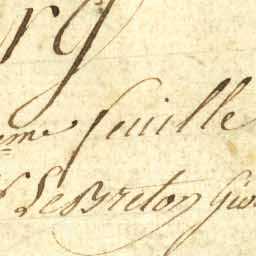 rg
eme feuille
Le Breton